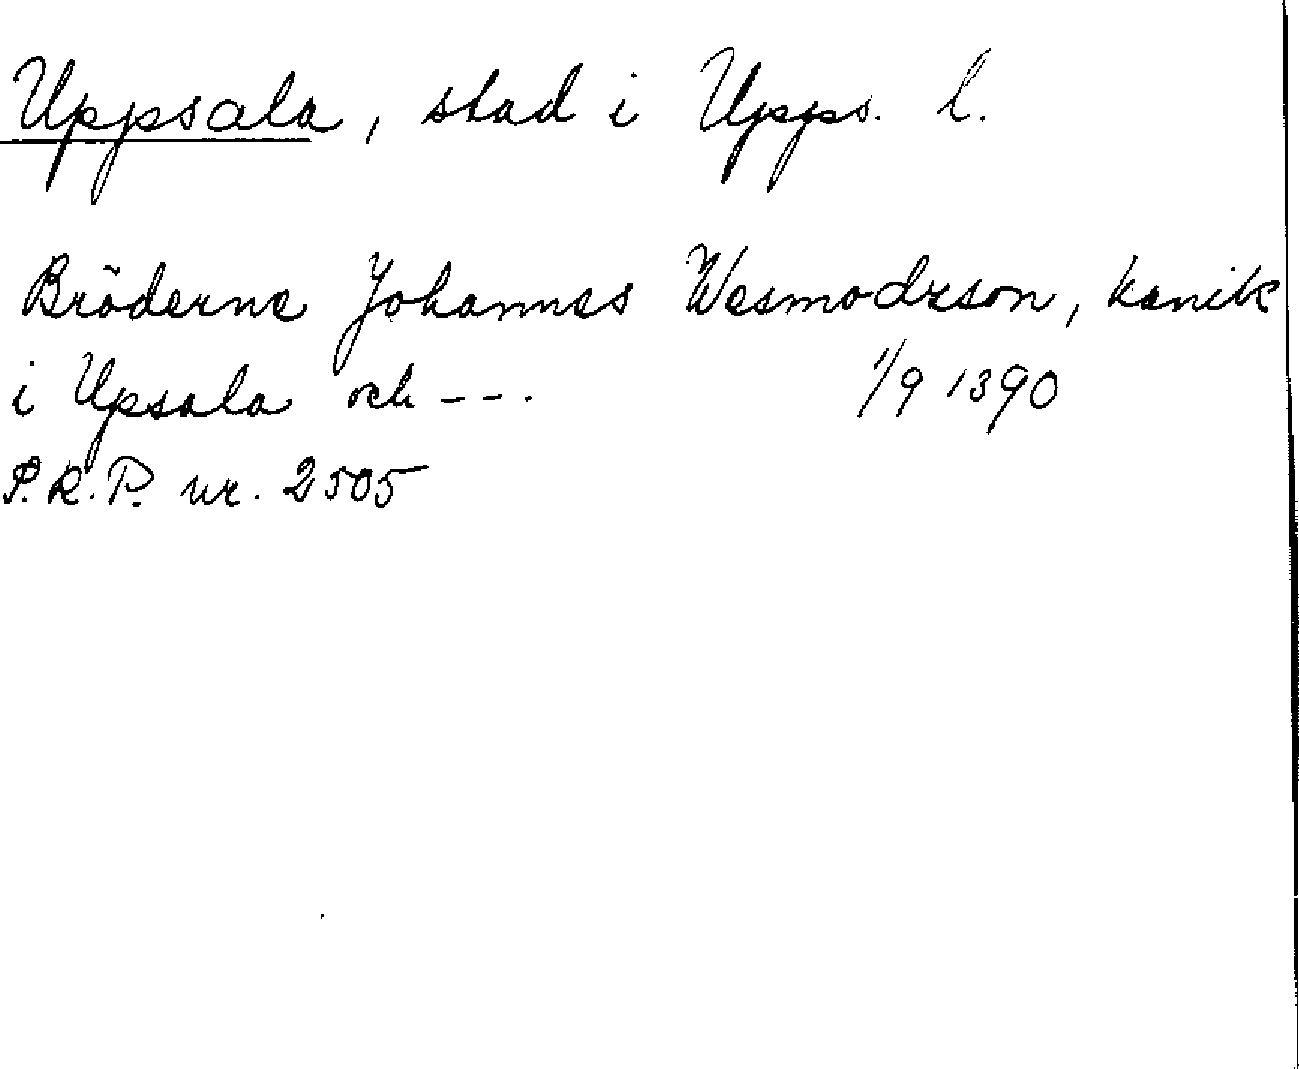 Uppsala, stad i Upps. l.
Bröderne Johannes Wesmodrson, kanik
i Upsala och ---. 1/9 1390
P.R.P. nr. 2505